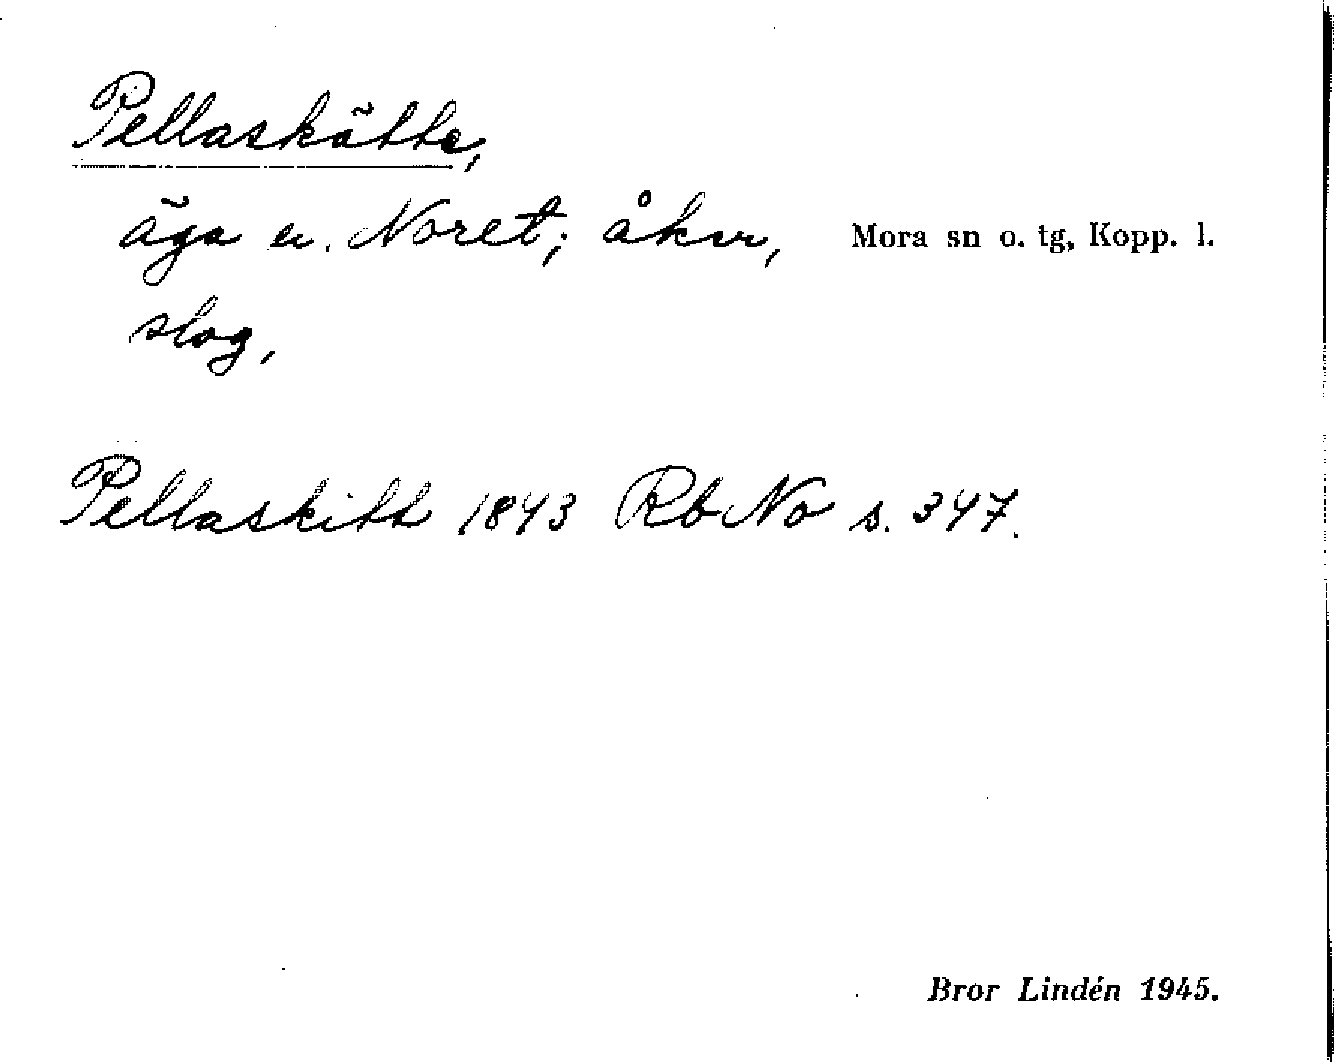 Pellaskätte,
äga u. Noret; åker, Mora sn o. tg, Kopp. l.
slog,
Pellaskitt 1843 Rb No s. 347.
Bror Lindén 1945.